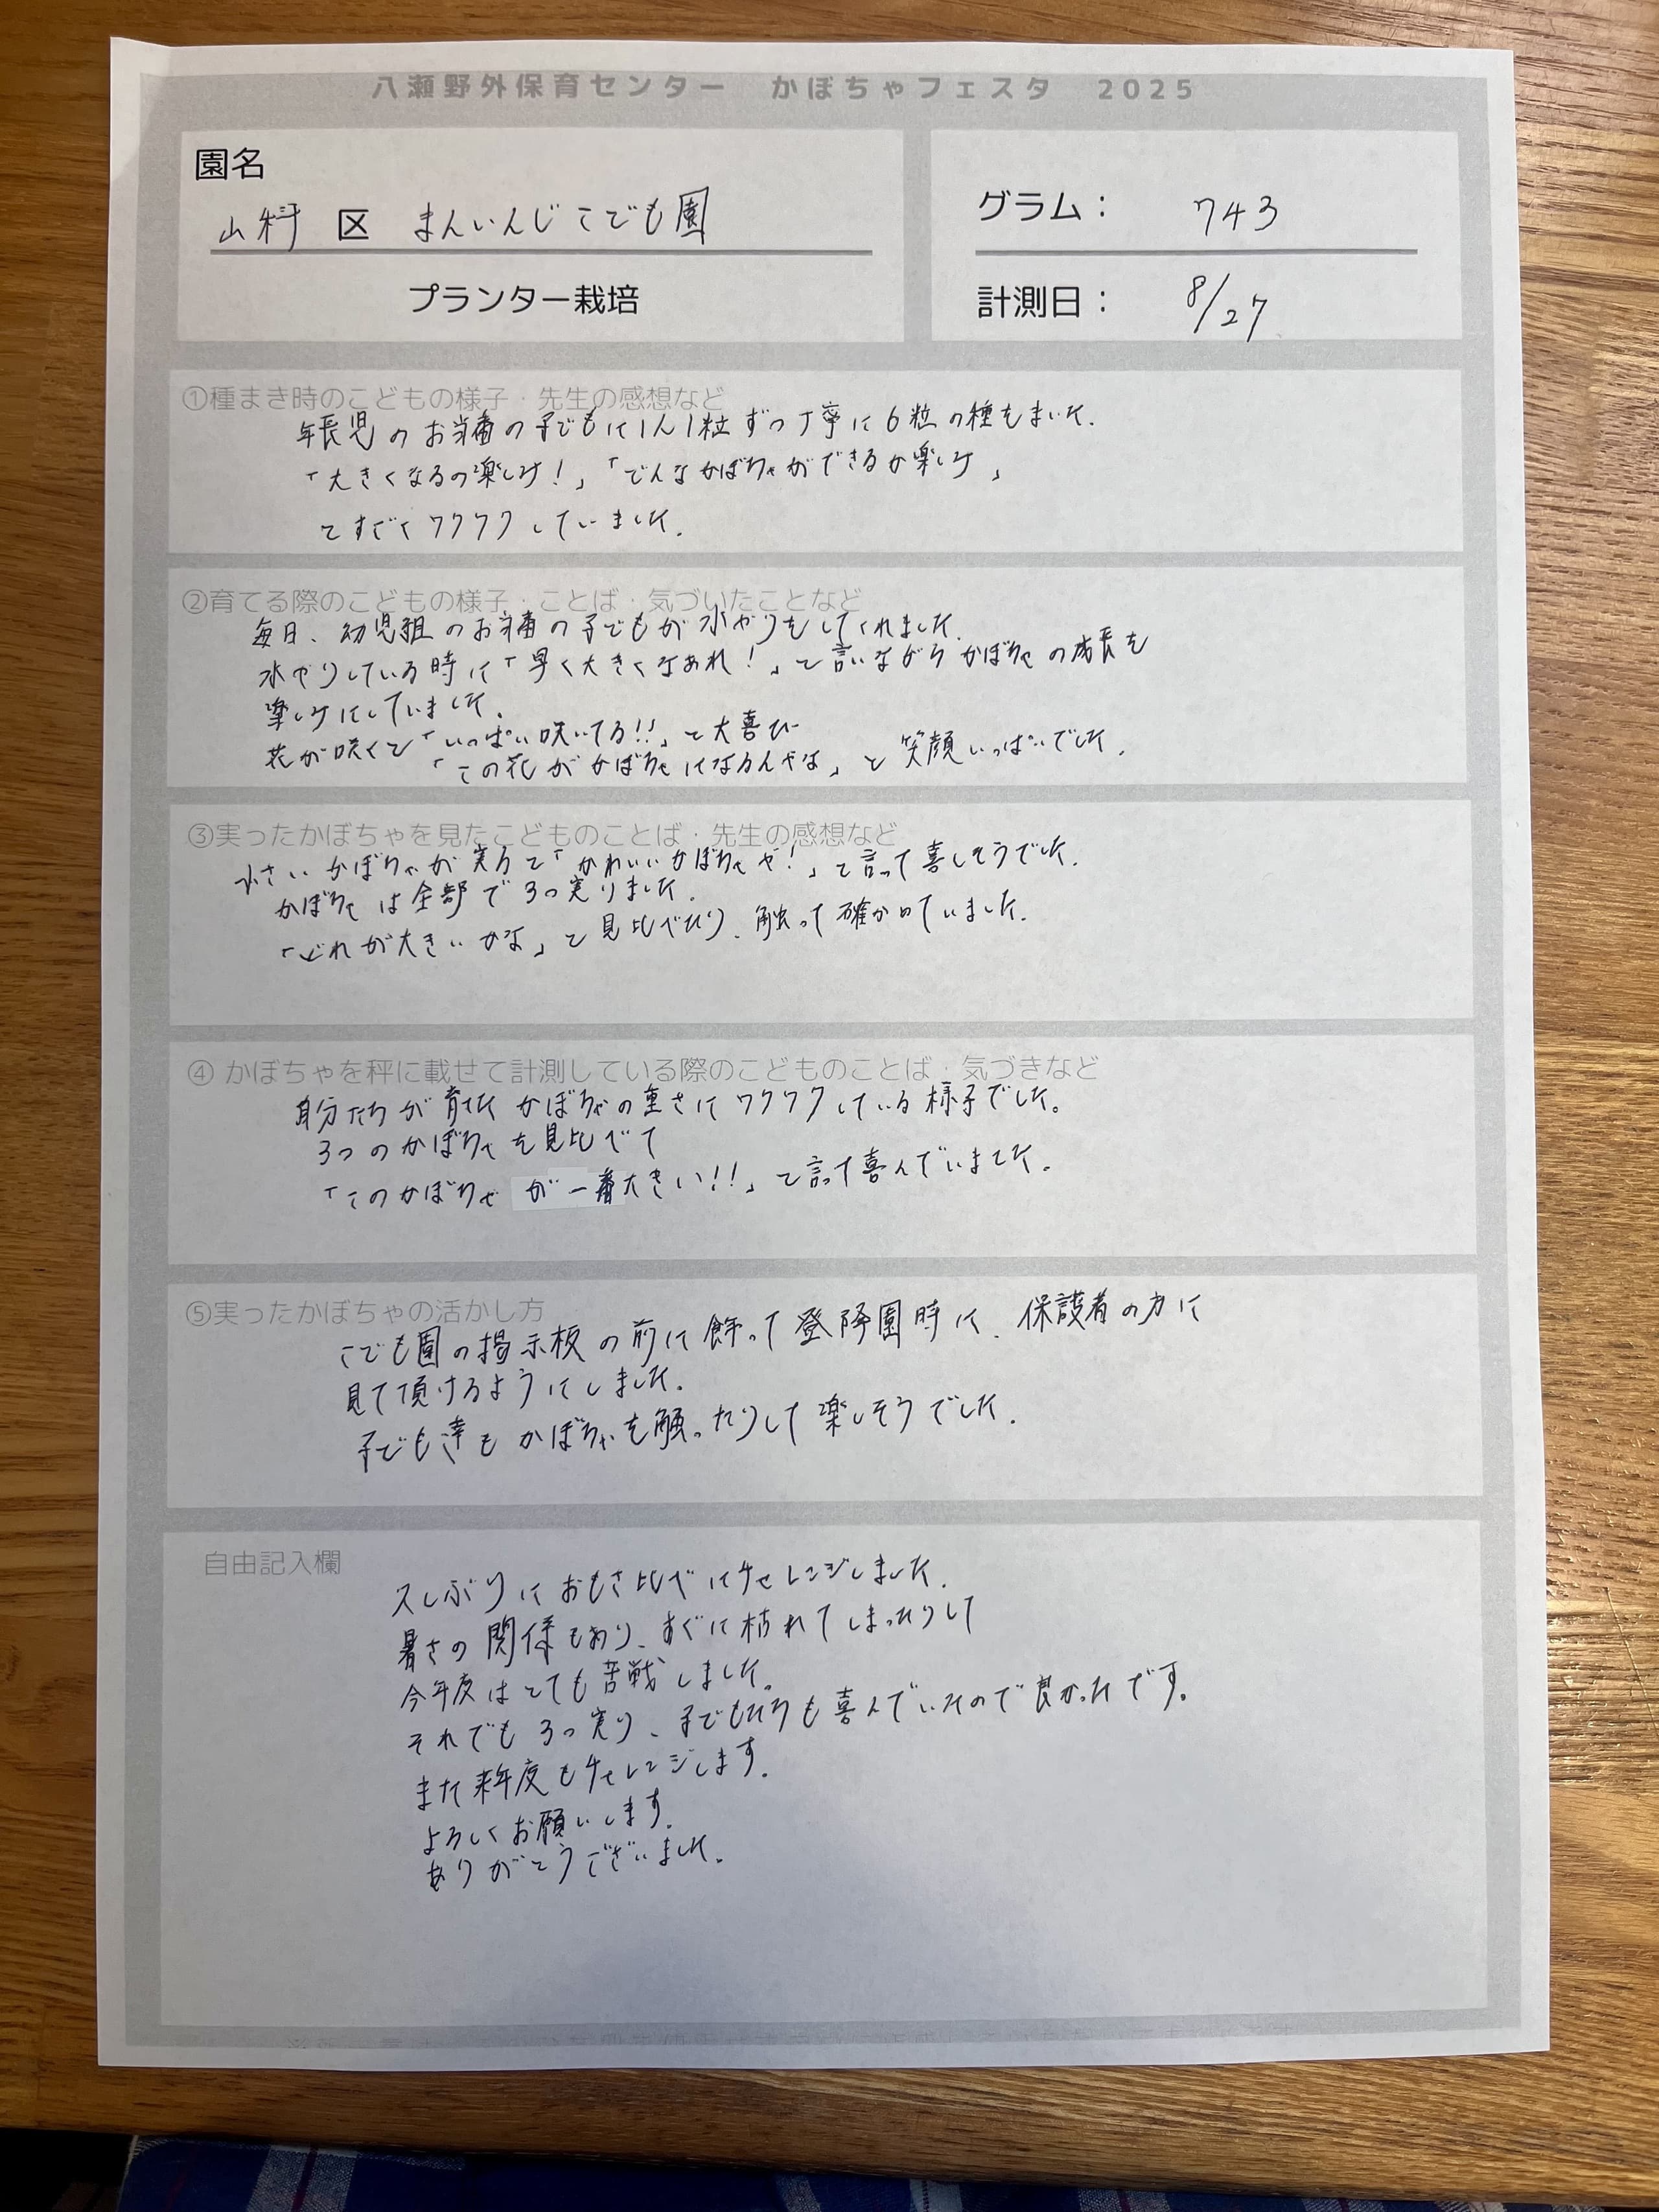 八瀬野外保育センター　かぼちゃフェスタ　2025
園名
山科 区 まんいんじこども園
プランター栽培
グラム： 743
計測日： 8/27
①種まき時のこどもの様子・先生の感想など
年長児のお当番の子どもに1人1粒ずつ丁寧に6粒の種をまいた.
「大きくなるの楽しみ！」「どんなかぼちゃができるか楽しみ」
とすごくワクワクしていました.
②育てる際のこどもの様子・ことば・気づいたことなど
毎日、幼児組のお当番の子どもが水やりをしてくれました.
水やりしている時に「早く大きくなあれ！」と言いながらかぼちゃの成長を
楽しみにしていました.
花が咲くと「いっぱい咲いてる!!」と大喜び
「この花がかぼちゃになるんやな」と笑顔いっぱいでした.
③実ったかぼちゃを見たこどものことば・先生の感想など
小さいかぼちゃが実ると「かわいいかぼちゃや！」と言って喜しそうでした.
かぼちゃは全部で3つ実りました.
「どれが大きいかな」と見比べたり、触って確かめていました.
④ かぼちゃを秤に載せて計測している際のこどものことば・気づきなど
自分たちが育てたかぼちゃの重さにワクワクしている様子でした。
3つのかぼちゃを見比べて
「このかぼちゃが一番大きい!!」と言って喜んでいました.
⑤実ったかぼちゃの活かし方
こども園の掲示板の前に飾って登降園時に、保護者の方に
見て頂けるようにしました.
子ども達もかぼちゃを触ったりして楽しそうでした.
自由記入欄
久しぶりにおもさ比べにチャレンジしました.
暑さの関係もあり、すぐに枯れてしまったりして
今年度はとても苦戦しました。
それでも3つ実り、子どもたちも喜んでいたので良かったです。
また来年度もチャレンジします.
よろしくお願いします.
ありがとうございました.